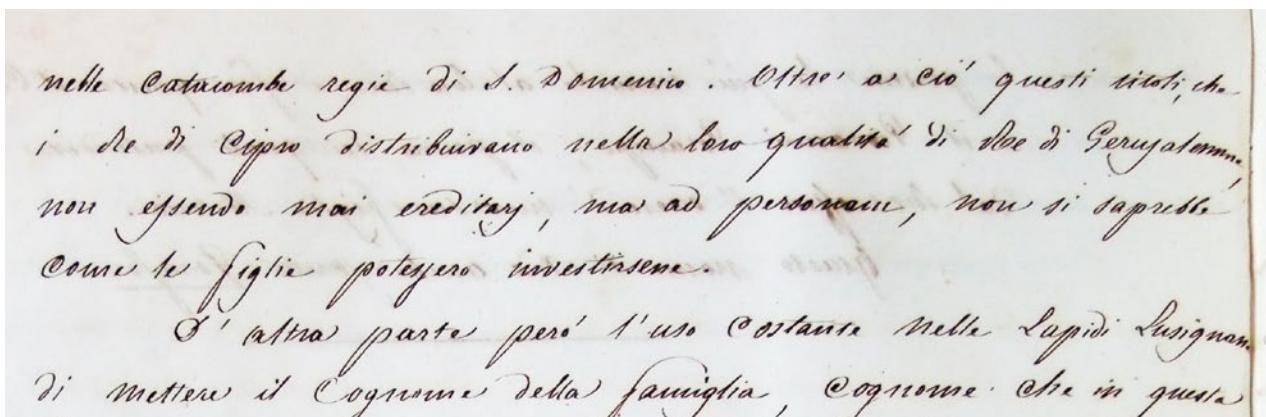 nelle Catacombe regie di S. Domenico. Oltre a ciò questi titoli, che
i Re di Cipro distribuivano nella loro qualità di Re di Gerusalemme,
non essendo mai ereditarj, ma ad personam, non si saprebbe
come le figlie potessero investirsene.
D'altra parte però l'uso costante nelle Lapidi Lusignane
di mettere il Cognome della famiglia, Cognome che in queste